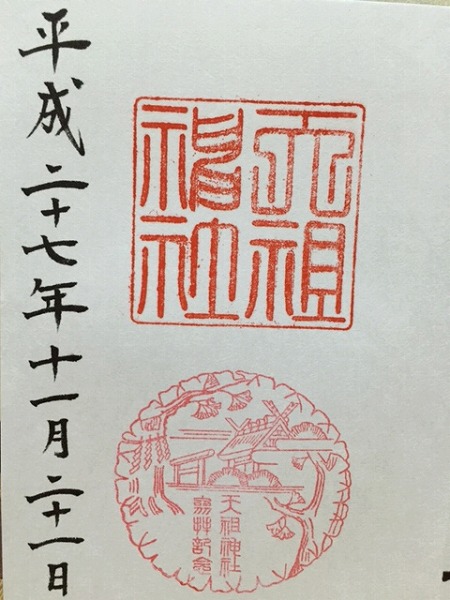 天祖
神社
天祖神社
參拜記念
平成二十七年十一月二十一日